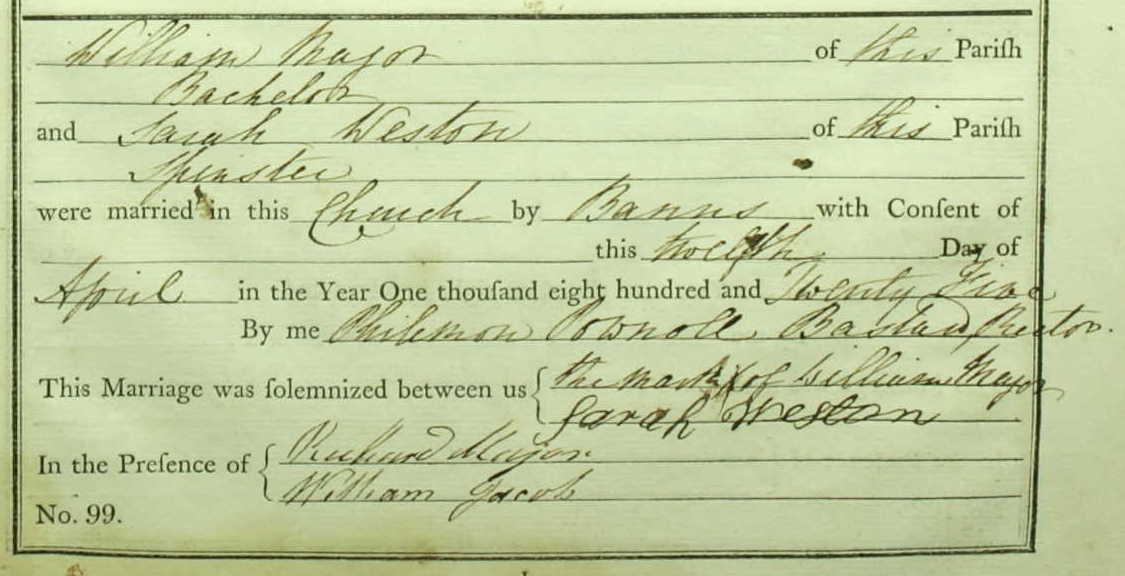 William Major of this Pariſh
Bachelor
and Sarah Weston of this Pariſh
Spinster
were married in this Church by Banns with Conſent of
this twelfth Day of
April in the Year One thouſand eight hundred and Twenty Five
By me Philemon Pownoll Bastard Rector.
This Marriage was ſolemnized between us the mark X of William Major
Sarah Weston
In the Preſence of Richard Major
William Jacob
No. 99.